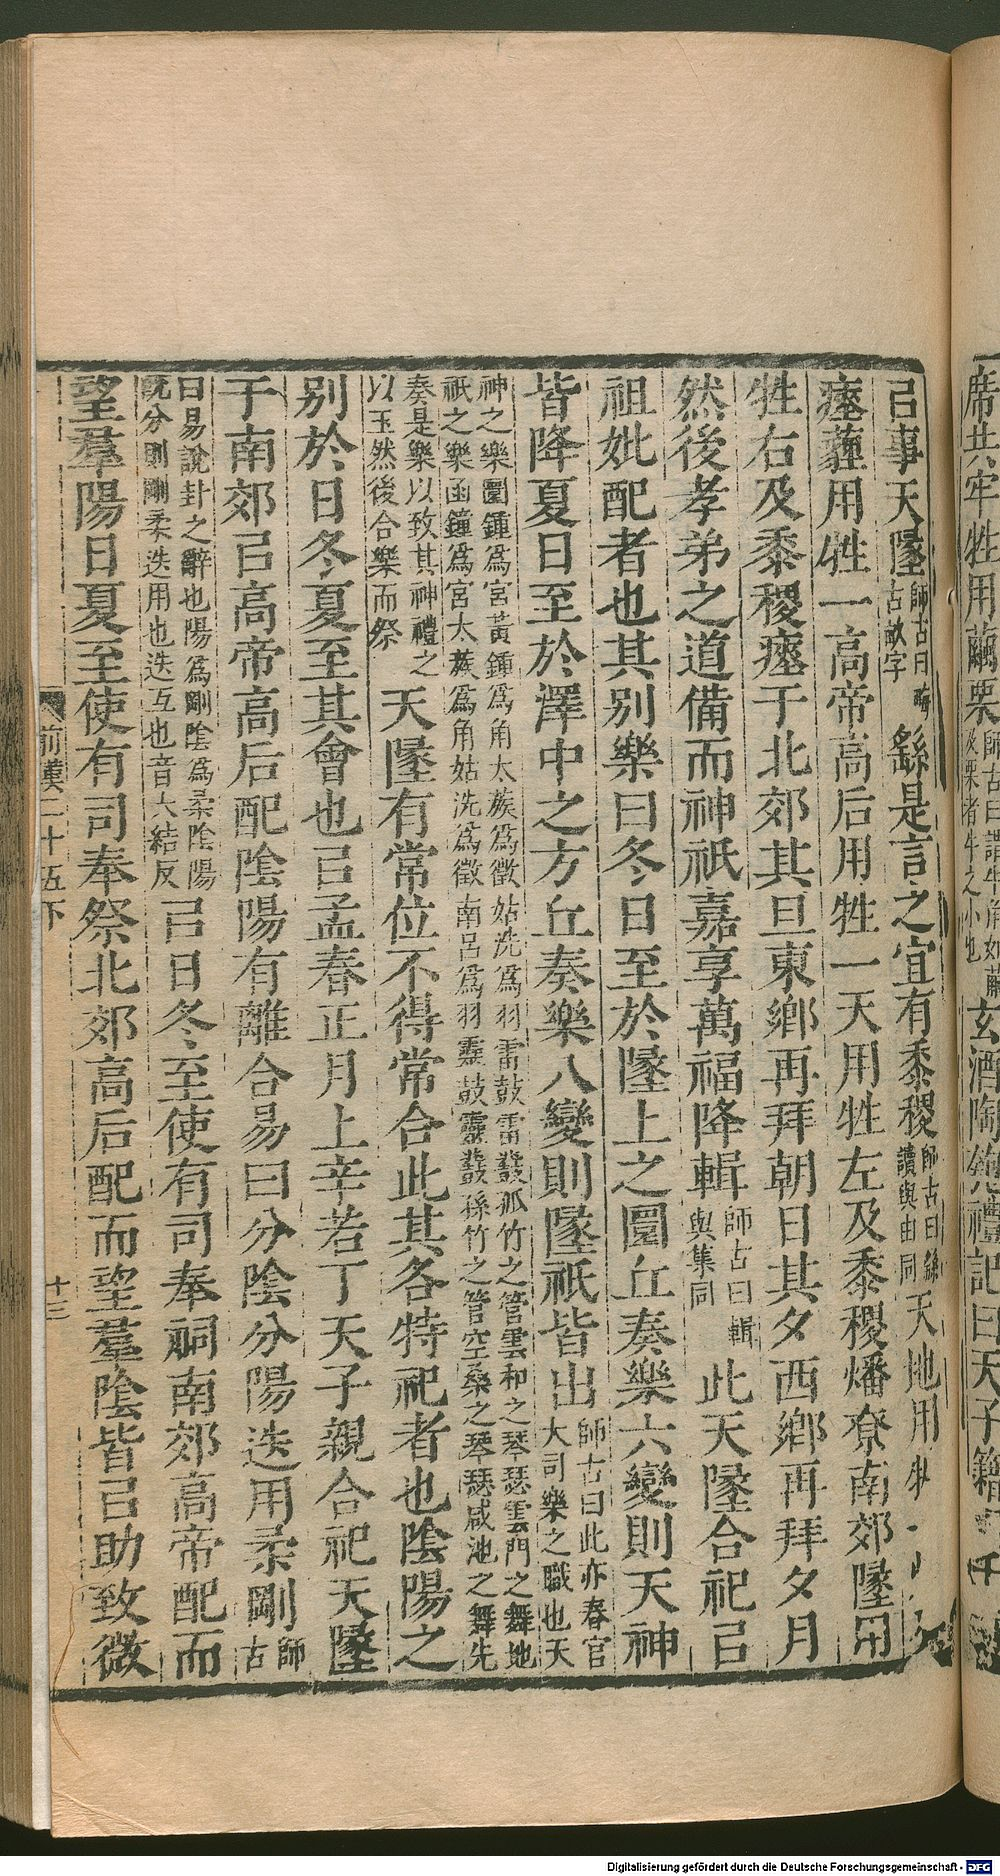 席共牢牲用繭栗師古曰謂牛角如繭及栗者牛之小也玄酒陶匏禮記曰天子籍
㠯事天墬師古曰晦古畝字繇是言之宜有黍稷師古曰繇讀與由同天地用牲一
瘞薶用牲一高帝高后用牲一天用牲左及黍稷燔寮南郊墬用
牲右及黍稷瘞于北郊其旦東鄉再拜朝日其夕西鄉再拜夕月
然後孝弟之道備而神祇嘉享萬福降輯師古曰輯與集同此天墬合祀㠯
祖妣配者也其别樂曰冬日至於墬上之圜丘奏樂六變則天神
皆降夏日至於澤中之方丘奏樂八變則墬祇皆出師古曰此亦春官大司樂之職也天
神之樂圜鍾爲宮黃鍾爲角太蔟爲徵姑洗爲羽雷鼓雷鼗孤竹之管雲和之琴瑟雲門之舞地
祇之樂函鐘爲宮太蔟爲角姑洗爲徵南呂爲羽靈鼓靈鼗孫竹之管空桑之琴瑟咸池之舞先
奏是樂以致其神禮之以玉然後合樂而祭天墬有常位不得常合此其各特祀者也陰陽之
别於日冬夏至其會也㠯孟春正月上辛若丁天子親合祀天墬
于南郊㠯高帝高后配陰陽有離合易曰分陰分陽迭用柔剛師古
曰易說卦之辭也陽爲剛陰爲柔陰陽既分則剛柔迭用也迭互也音大結反㠯日冬至使有司奉祠南郊高帝配而
望羣陽日夏至使有司奉祭北郊高后配而望羣陰皆㠯助致微
前漢二十五下
十三
Digitalisierung gefördert durch die Deutsche Forschungsgemeinschaft - DFG